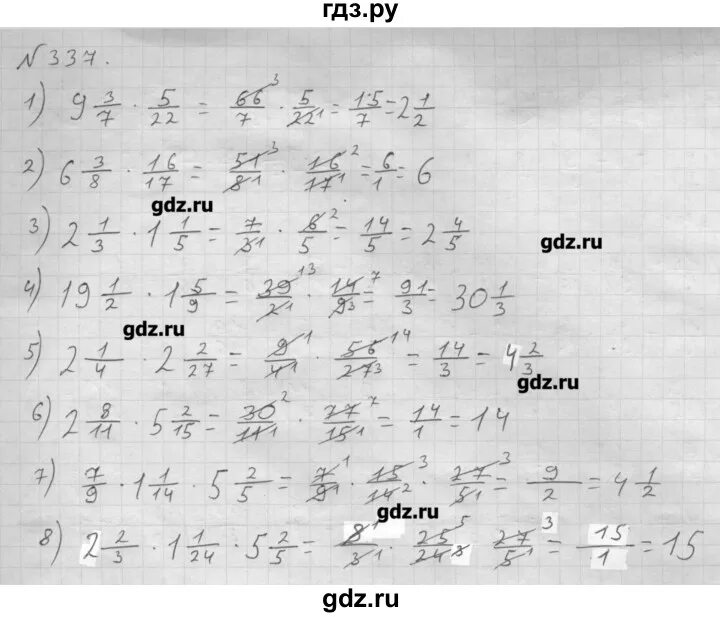 гдз.ру
№337.
1) 9 3/7 · 5/22 = 66 3/7 · 5/22 1 = 15/7 = 2 1/2
2) 6 3/8 · 16/17 = 51 3/8 1 · 16 2/17 1 = 6/1 = 6
gdz.ru
3) 2 1/3 · 1 1/5 = 7/3 1 · 6 2/5 = 14/5 = 2 4/5
gdz.ru
4) 19 1/2 · 1 5/9 = 39 13/2 1 · 14 7/9 3 = 91/3 = 30 1/3
gdz.ru
5) 2 1/4 · 2 2/27 = 9 1/4 1 · 56 14/27 3 = 14/3 = 4 2/3
gdz.ru
6) 2 8/11 · 5 2/15 = 30 2/11 1 · 77 7/15 1 = 14/1 = 14
7) 7/9 · 1 1/14 · 5 2/5 = 7 1/9 1 · 15 3/14 2 · 27 3/5 1 = 9/2 = 4 1/2
gdz.ru
8) 2 2/3 · 1 1/24 · 5 2/5 = 8 1/3 1 · 25 5/24 3 · 27 3/5 1 = 15/1 = 15
gdz.ru